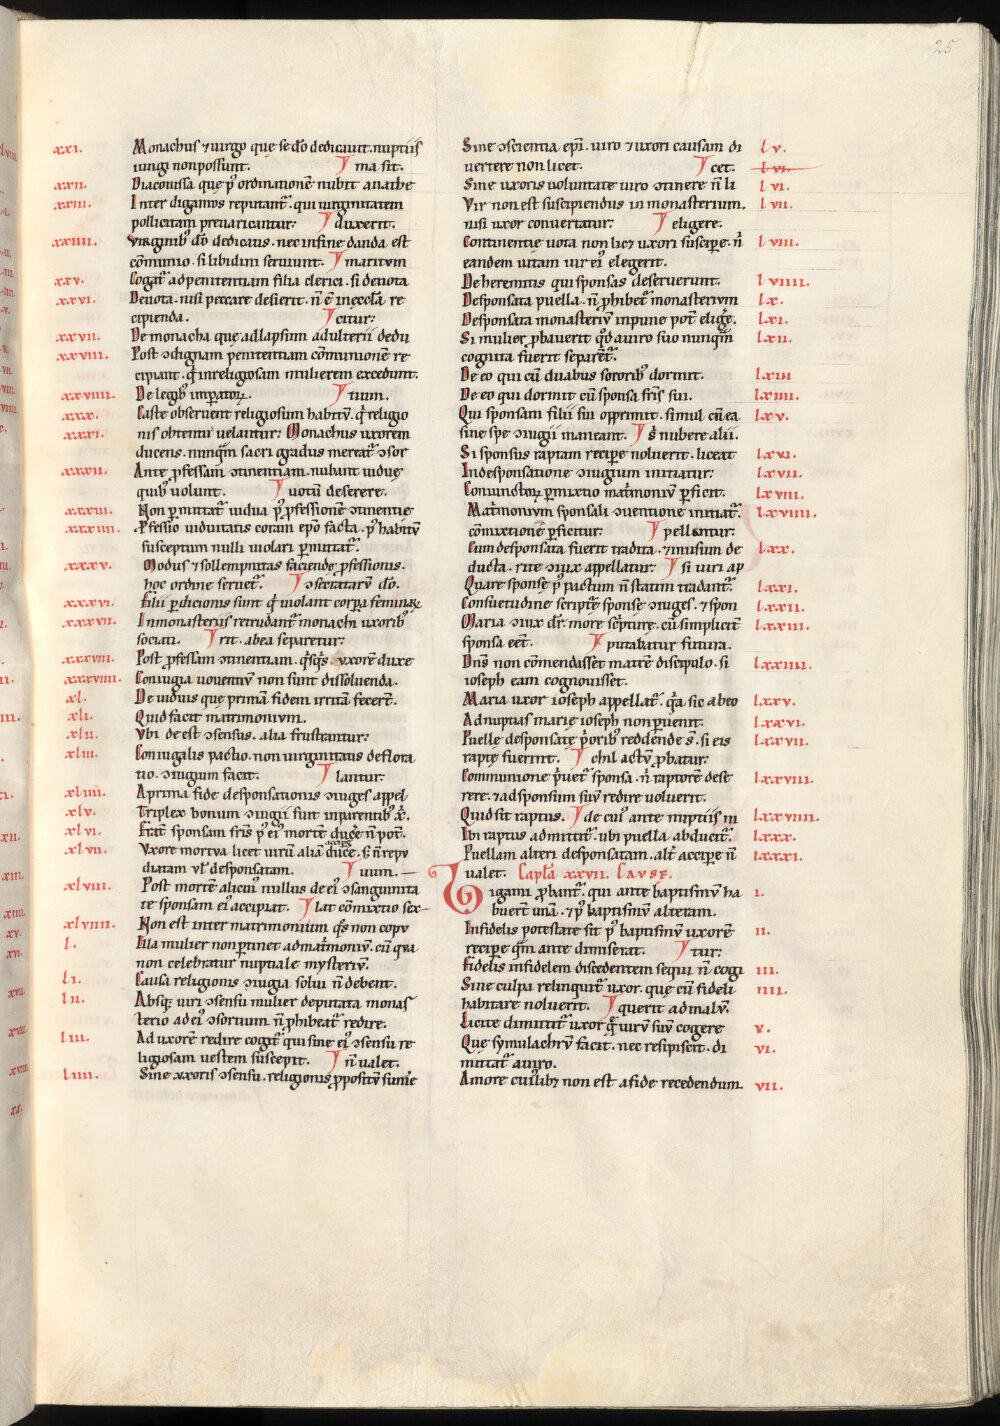 25
xxi. Monachus ⁊ uirgo que se dō dedicauit. nuptiis
iungi non possunt. ma sit.
xxii. Diaconissa que p' ordinationē nubit anathe
xxiii. Inter digamos reputant᷑. qui uirginitatem
pollicitam preuaricantur: duxerit.
xxiiii. Virginib' dō dedicatis. nec in fine danda est
cōmunio. si libidini seruiunt. maritum
xxv. Cogat᷑ ad penitentiam filia clerici. si deuota
xxvi. Deuota. nisi peccare desierit. n̄ ē in ęccl̄a re
cipienda. citur:
xxvii. De monacha que ad lapsum adulterii dedu
xxviii. Post ↄdignam penitentiam cōmunionē re
cipiant. q̇ in religiosam mulierem excedunt.
xxviiii. De legib' imperatoꝝ. tum.
xxx. Caste obseruent religiosum habitū. q̇ religio
xxxi. nis obtentu uelantur: Monachus uxorem
ducens. nunq̄m sacri gradus mereat᷑ ↄsor
xxxii. Ante ꝓfessam ↄtinentiam. nubant uidue
quib' uolunt. uotū deserere.
xxxiii. Non ꝑmittat᷑ uidua p' ꝓfessionē ↄtinentie
xxxiiii. Ꝓfessio uiduitatis coram epō facta. p' habitū
susceptum nulli uiolari ꝑmittat᷑.
xxxv. Modus ⁊ sollempnitas faciende ꝓfessionis.
hoc ordine seruet᷑. ↄsecratarū dō.
xxxvi. Filii ꝑdicionis sunt q̇ uiolant corꝑa feminaꝝ
xxxvii. In monasteriis retrudant᷑ monachi uxorib'
sociati. rit. ab ea separetur:
xxxviii. Post ꝓfessam ↄtinentiam. q̇sq̇s uxorē duxe
xxxviiii. Coniugia uouentiū non sunt dissoluenda.
xl. De uiduis que primā fidem irritā fecert̄.
xli. Quid facit matrimonium.
xlii. Vbi deest ↄsensus. alia frustrantur:
xliii. Coniugalis pactio. non uirginitatis deflora
tio. ↄiugium facit. lantur:
xliiii. A prima fide desponsationis ↄiuges appel
xlv. Triplex bonum ↄiugii fuit in parentib' x̄.
xlvi. Frat᷑ sponsam fr̄is p' ei' mortē ducere n̄ pot̄.
xlvii. Vxore mortua licet uirū aliā ducere. s; n̄ repu
diatam ul' desponsatam. uum.
xlviii. Post mortē alicui' nullus de ei' ↄsanguinita
te sponsam ei' accipiat. lat cōmixtio sex
xlviiii. Non est inter matrimonium q̄s non copu
l. Illa mulier non ptinet ad mat᷑moniū. cū qua
non celebratur nuptiale mysteriū.
li. Causa religionis ↄiugia solui n̄ debent.
lii. Absq; uiri ↄsensu mulier deputata monas
terio ad ei' ↄsortium n̄ ꝓhibeat᷑ redire.
liii. Ad uxorē redire cogit᷑ qui sine ei' ↄsensu re
ligiosam uestem suscepit. n̄ ualet.
liiii. Sine uxoris ↄsensu. religionis ꝓpositū sume
Sine ↄscientia ep̄i. uiro ⁊ uxori causam di lv.
uertere non licet. cet. lvi.
Sine uxoris uoluntate uiro ↄtinere n̄ li lvi.
Vir non est suscipiendus in monasterium. lvii.
nisi uxor conuertatur. eligere.
Continentie uota non lic; uxori suscipe. n̄ lviii.
eandem uitam uir ei' elegerit.
De heremitis qui sponsas deseruerunt. lviiii.
Desponsata puella. n̄ ꝓhibet᷑ monasterium lx.
Desponsata monasteriū inpune pot̄ elig̃e. lxi.
Si mulier ꝓbauerit qd a uiro suo nunq̄m lxii.
cognita fuerit separet᷑.
De eo qui cū duabus sororib' dormit. lxiii
De eo qui dormit cū sponsa fr̄is sui. lxiiii.
Qui sponsam filii sui opprimit. simul cū ea lxv.
sine spe ↄiugii maneant. s; nubere alii.
Si sponsus raptam recipe noluerit. liceat lxvi.
In desponsatione ↄiugium initiatur: lxvii.
Coniunctoꝝ ꝑmixtio mat᷑moniū ꝑficit. lxviii.
Mat᷑monium sponsali ↄuentione initiat᷑. lxviiii.
cōmixtione ꝑficitur. pellantur:
Cum desponsata fuerit tradita. ⁊ in usum de lxx.
ducta. rite ↄiux appellatur: si uiri ap
Quare sponse p' pactum n̄ statim tradant᷑. lxxi.
Consuetudine scripturę̄ sponse ↄiuges. ⁊ spon lxxii.
Maria ↄiux dr̄. more sc̄pture. cū simplicit᷑ lxxiii.
sponsa eēt. putabatur futura.
Dn̄s non cōmendasset matrē discipulo. si lxxiiii.
ioseph eam cognouisset.
Maria uxor ioseph appellat᷑. q̇a sic ab eo lxxv.
Ad nuptias marie ioseph non puenit. lxxvi.
Puelle desponsate ṗorib' reddende s̄. si eis lxxvii.
rapte fuerint. chil actū ꝓbatur:
Communione ṗuet᷑ sponsa. n̄ raptorē dese lxxviii.
rere. ⁊ ad sponsum suū redire uoluerit.
Quid sit raptus. de cui' ante nuptiis ni lxxviiii.
Ibi raptus admittit᷑. ubi puella abducit᷑. lxxx.
Puellam alteri desponsatam. alt᷑ accipe n̄ lxxxi.
ualet. Capl̄a xxvii. Cause.
Bigami ꝓbant᷑. qui ante baptismū ha i.
buert̄ unā. ⁊ p' baptismū alteram.
Infidelis potestate sit p' baptismū uxorē ii.
recipe q̄m ante dimiserat. tur:
Fidelis infidelem discedentem sequi n̄ cogi iii.
Sine culpa relinquit᷑ uxor. que cū fideli iiii.
habitare noluerit. querit ad malū.
Licite dimittit᷑ uxor q̄ uirū suū cogere v.
Que symulachrū facit. nec resipiscit. di vi.
mittat᷑ a uiro.
Amore cui'lib; non est a fide recedendum. vii.